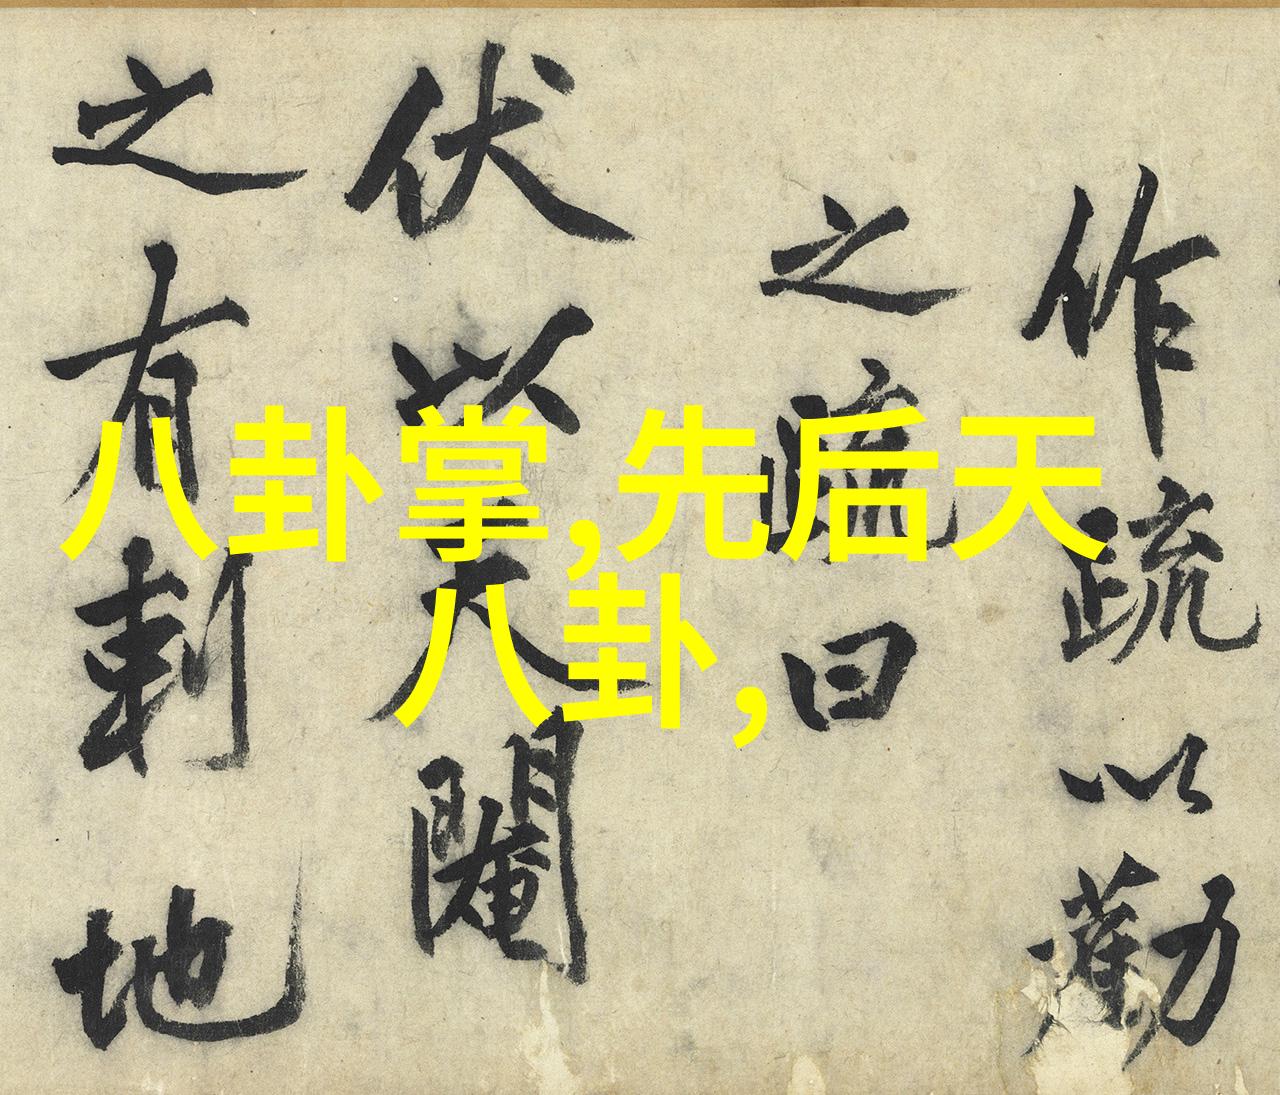 作疏以勸
之疏曰
伏以天闊
之有刺地
八卦掌,先后天
八卦,